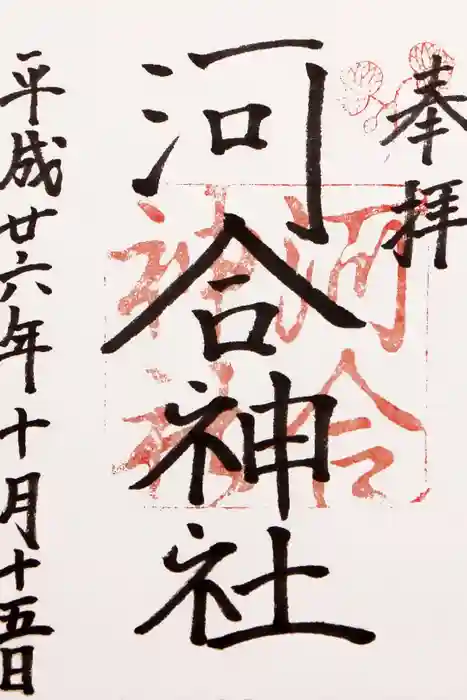 奉拝
河合神社
河合神社
平成廿六年十月十五日